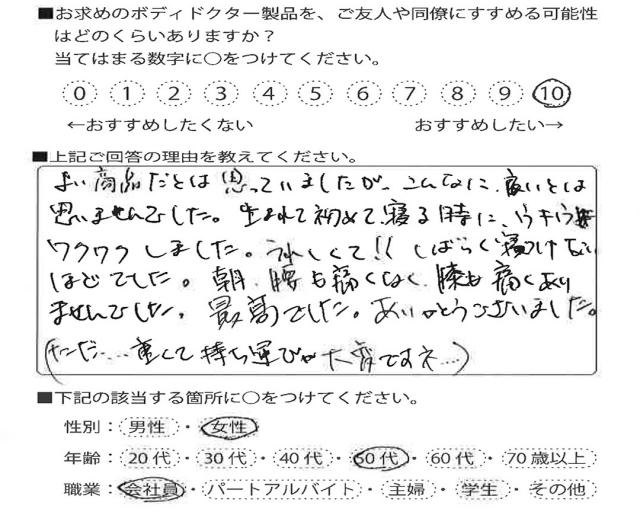 ■お求めのボディドクター製品を、ご友人や同僚にすすめる可能性
はどのくらいありますか?
当てはまる数字に○をつけてください。
0 1 2 3 4 5 6 7 8 9 10
←おすすめしたくない おすすめしたい→
■上記ご回答の理由を教えてください。
よい商品だとは思っていましたが、こんなに、良いとは
思いませんでした。生まれて初めて、寝る時に、ウキウキ
ワクワクしました。うれしくて!!しばらく寝つけない
ほどでした。朝、腰も痛くなく、膝も痛くあり
ませんでした。最高でした。ありがとうございました。
(ただ…重くて持ち運びが大変ですネ…)
■下記の該当する箇所に○をつけてください。
性別:男性・女性
年齢:20代・30代・40代・50代・60代・70歳以上
職業:会社員・パートアルバイト・主婦・学生・その他